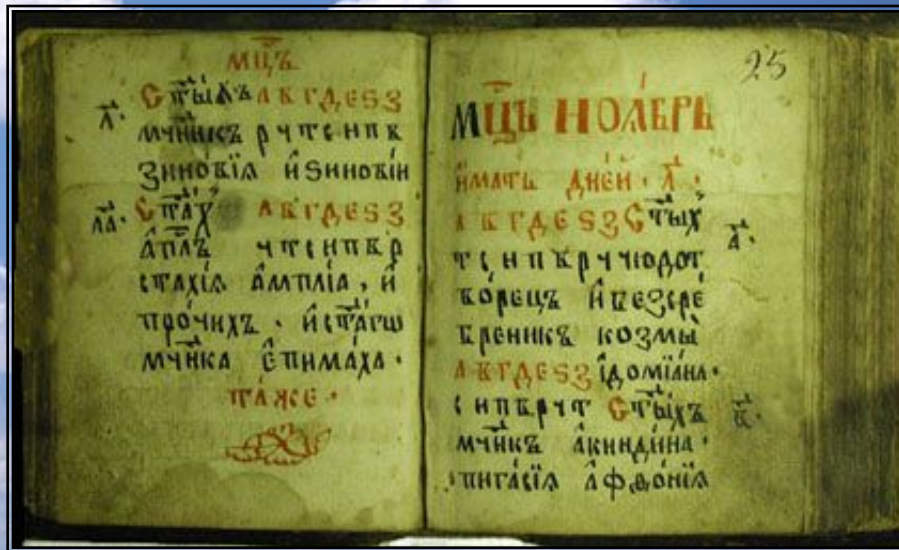 мц҃ъ
л҃ Ст҃ы́хъ а в г д е ѕ з
мч҃никъ р ч т с н п в
Зино́вїѧ и҆ Ѕинові́и
ла҃· Ст҃а́х а в г д е ѕ з
а҆п҃лъ ч т с н п в р
стахі́ѧ а҆мплі́а, и҆
про́чихъ · и҆ ст҃а́гѡ
мч҃нка є҆пима́ха ·
та́же ·
25
мц҃ъ ноѧ́брь
и҆мать дне́й · л҃ ·
а в г д е ѕ з Ст҃ых
т с н п в р ч чюдот а҃·
во́рецъ и҆ безсре́
бреникъ козмы̀
а в г д е ѕ з і҆домїа́на·
с н п в р ч т Ст҃ы́хъ в҃·
мч҃нкъ а҆кинди́на ·
пига́сїѧ а҆фѳо́нїѧ